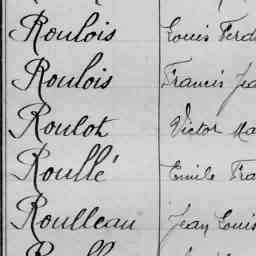 Roulois Louis Ferd
Roulois Francis Jea
Roulot Victor Ma
Roullé Emile Fra
Roulleau Jean Louis